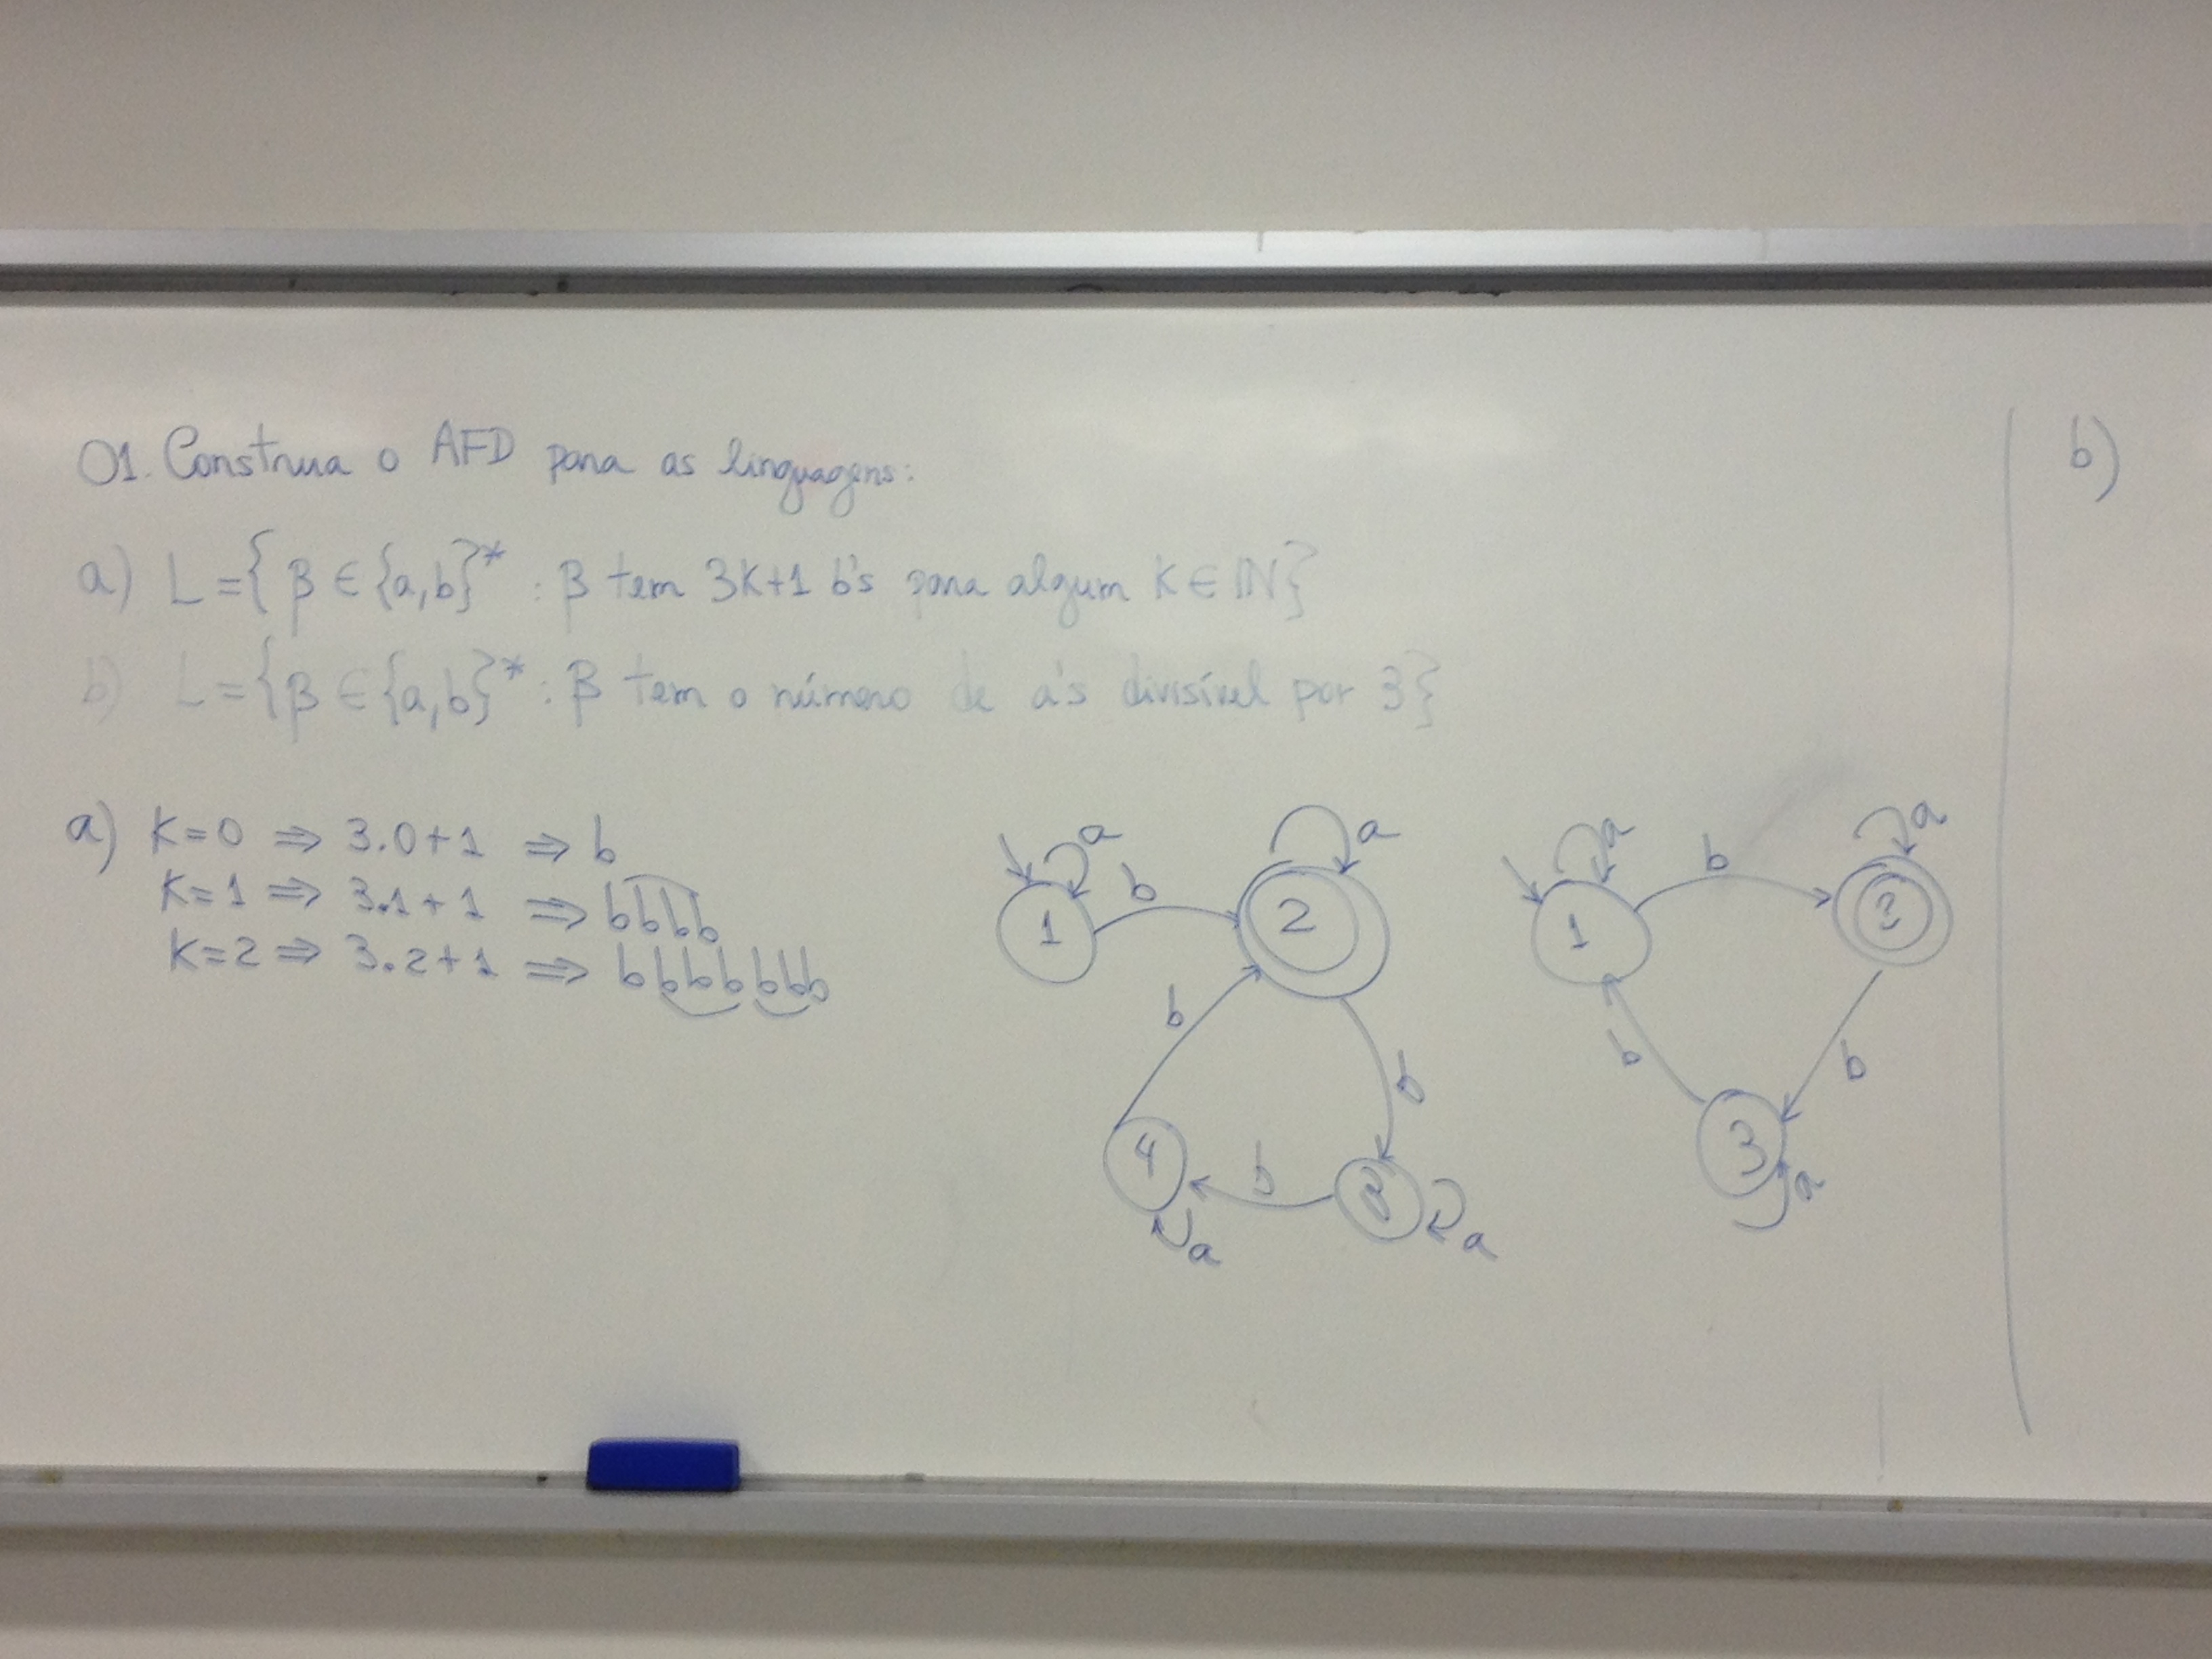 01. Construa o AFD para as linguagens:
a) L = { β ∈ {a,b}* : β tem 3K+1 b's para algum K ∈ ℕ}
b) L = {β ∈ {a,b}* : β tem o número de a's divisível por 3}
a) K=0 ⇒ 3.0+1 ⇒ b
K=1 ⇒ 3.1+1 ⇒ bbbb
K=2 ⇒ 3.2+1 ⇒ bbbbbbb
a
b
a
1
2
b
b
4
b
a
a
a
b
a
1
b
b
3
a
b)